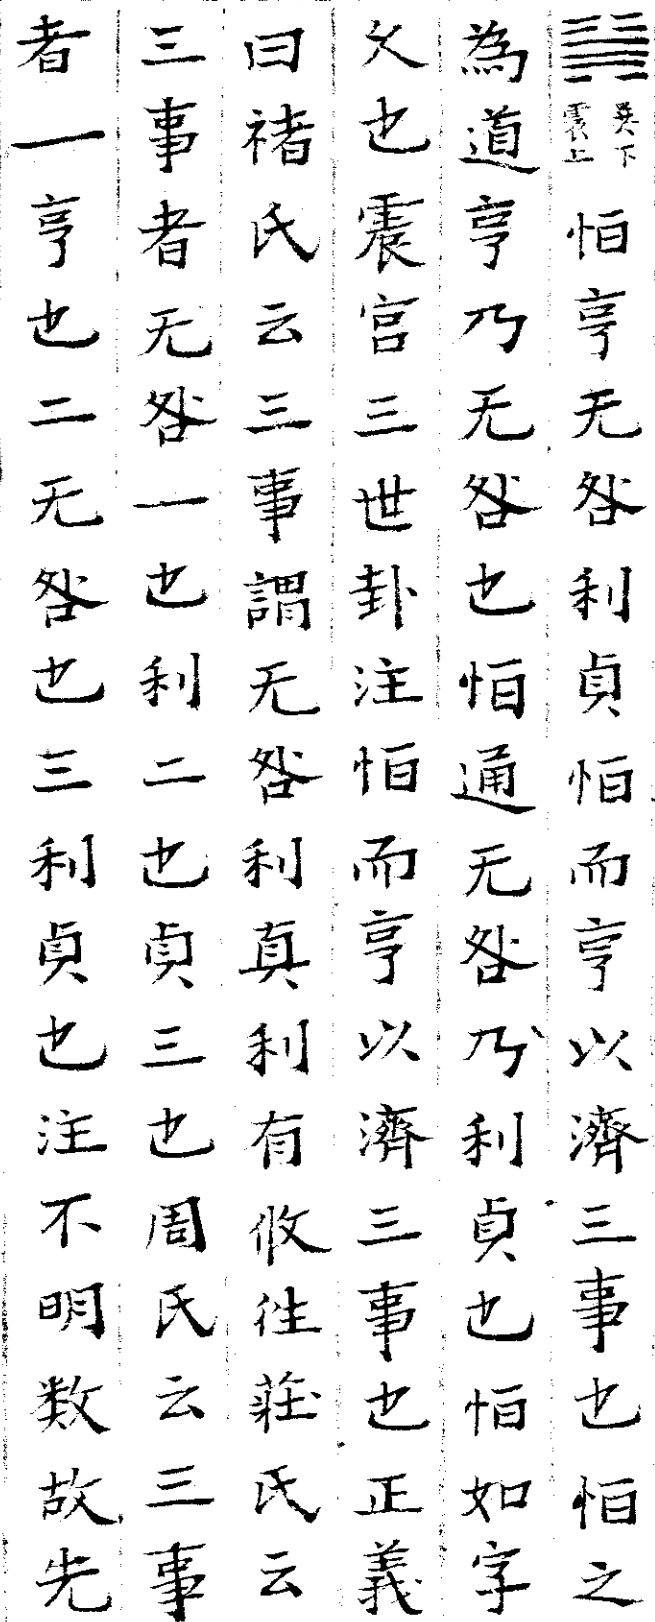 ䷟巽下震上恒亨无咎利貞恒而亨以濟三事也恒之
為道亨乃无咎也恒通无咎乃利貞也恒如字
久也震宫三世卦注恒而亨以濟三事也正義
曰褚氏云三事謂无咎利真利有攸往莊氏云
三事者无咎一也利二也貞三也周氏云三事
者一亨也二无咎也三利貞也注不明数故先